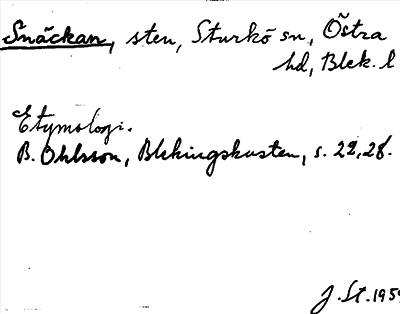 Snäckan, sten, Sturkö sn, Östra
hd, Blek. l
Etymologi.
B. Ohlsson, Blekingskusten, s. 22, 28.
J. St. 1959